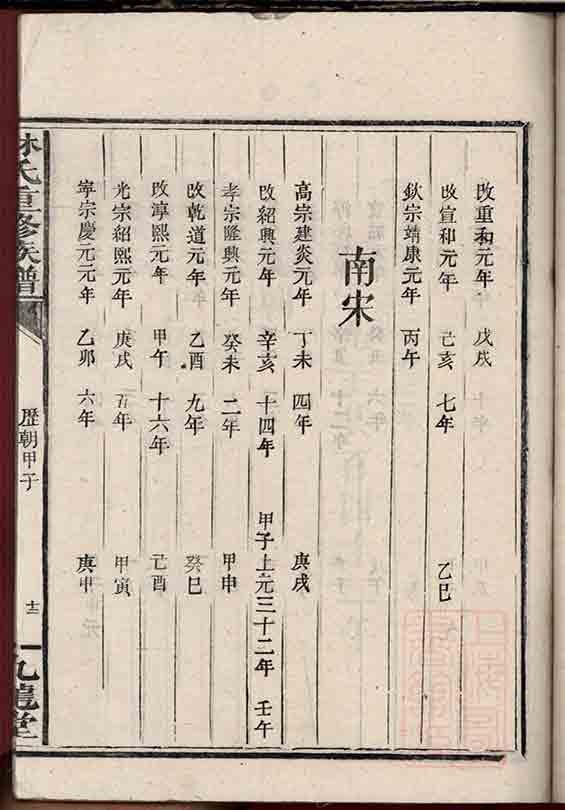 改重和元年 戊戌
改宣和元年 己亥 七年 乙巳
欽宗靖康元年 丙午
南宋
高宗建炎元年 丁未 四年 庚戌
改紹興元年 辛亥 十四年 甲子上元三十二年 壬午
孝宗隆興元年 癸未 二年 甲申
改乾道元年 乙酉 九年 癸巳
改淳熙元年 甲午 十六年 己酉
光宗紹熙元年 庚戌 五年 甲寅
寧宗慶元元年 乙卯 六年 庚申
林氏重修族譜 歷朝甲子 十三 九龍堂